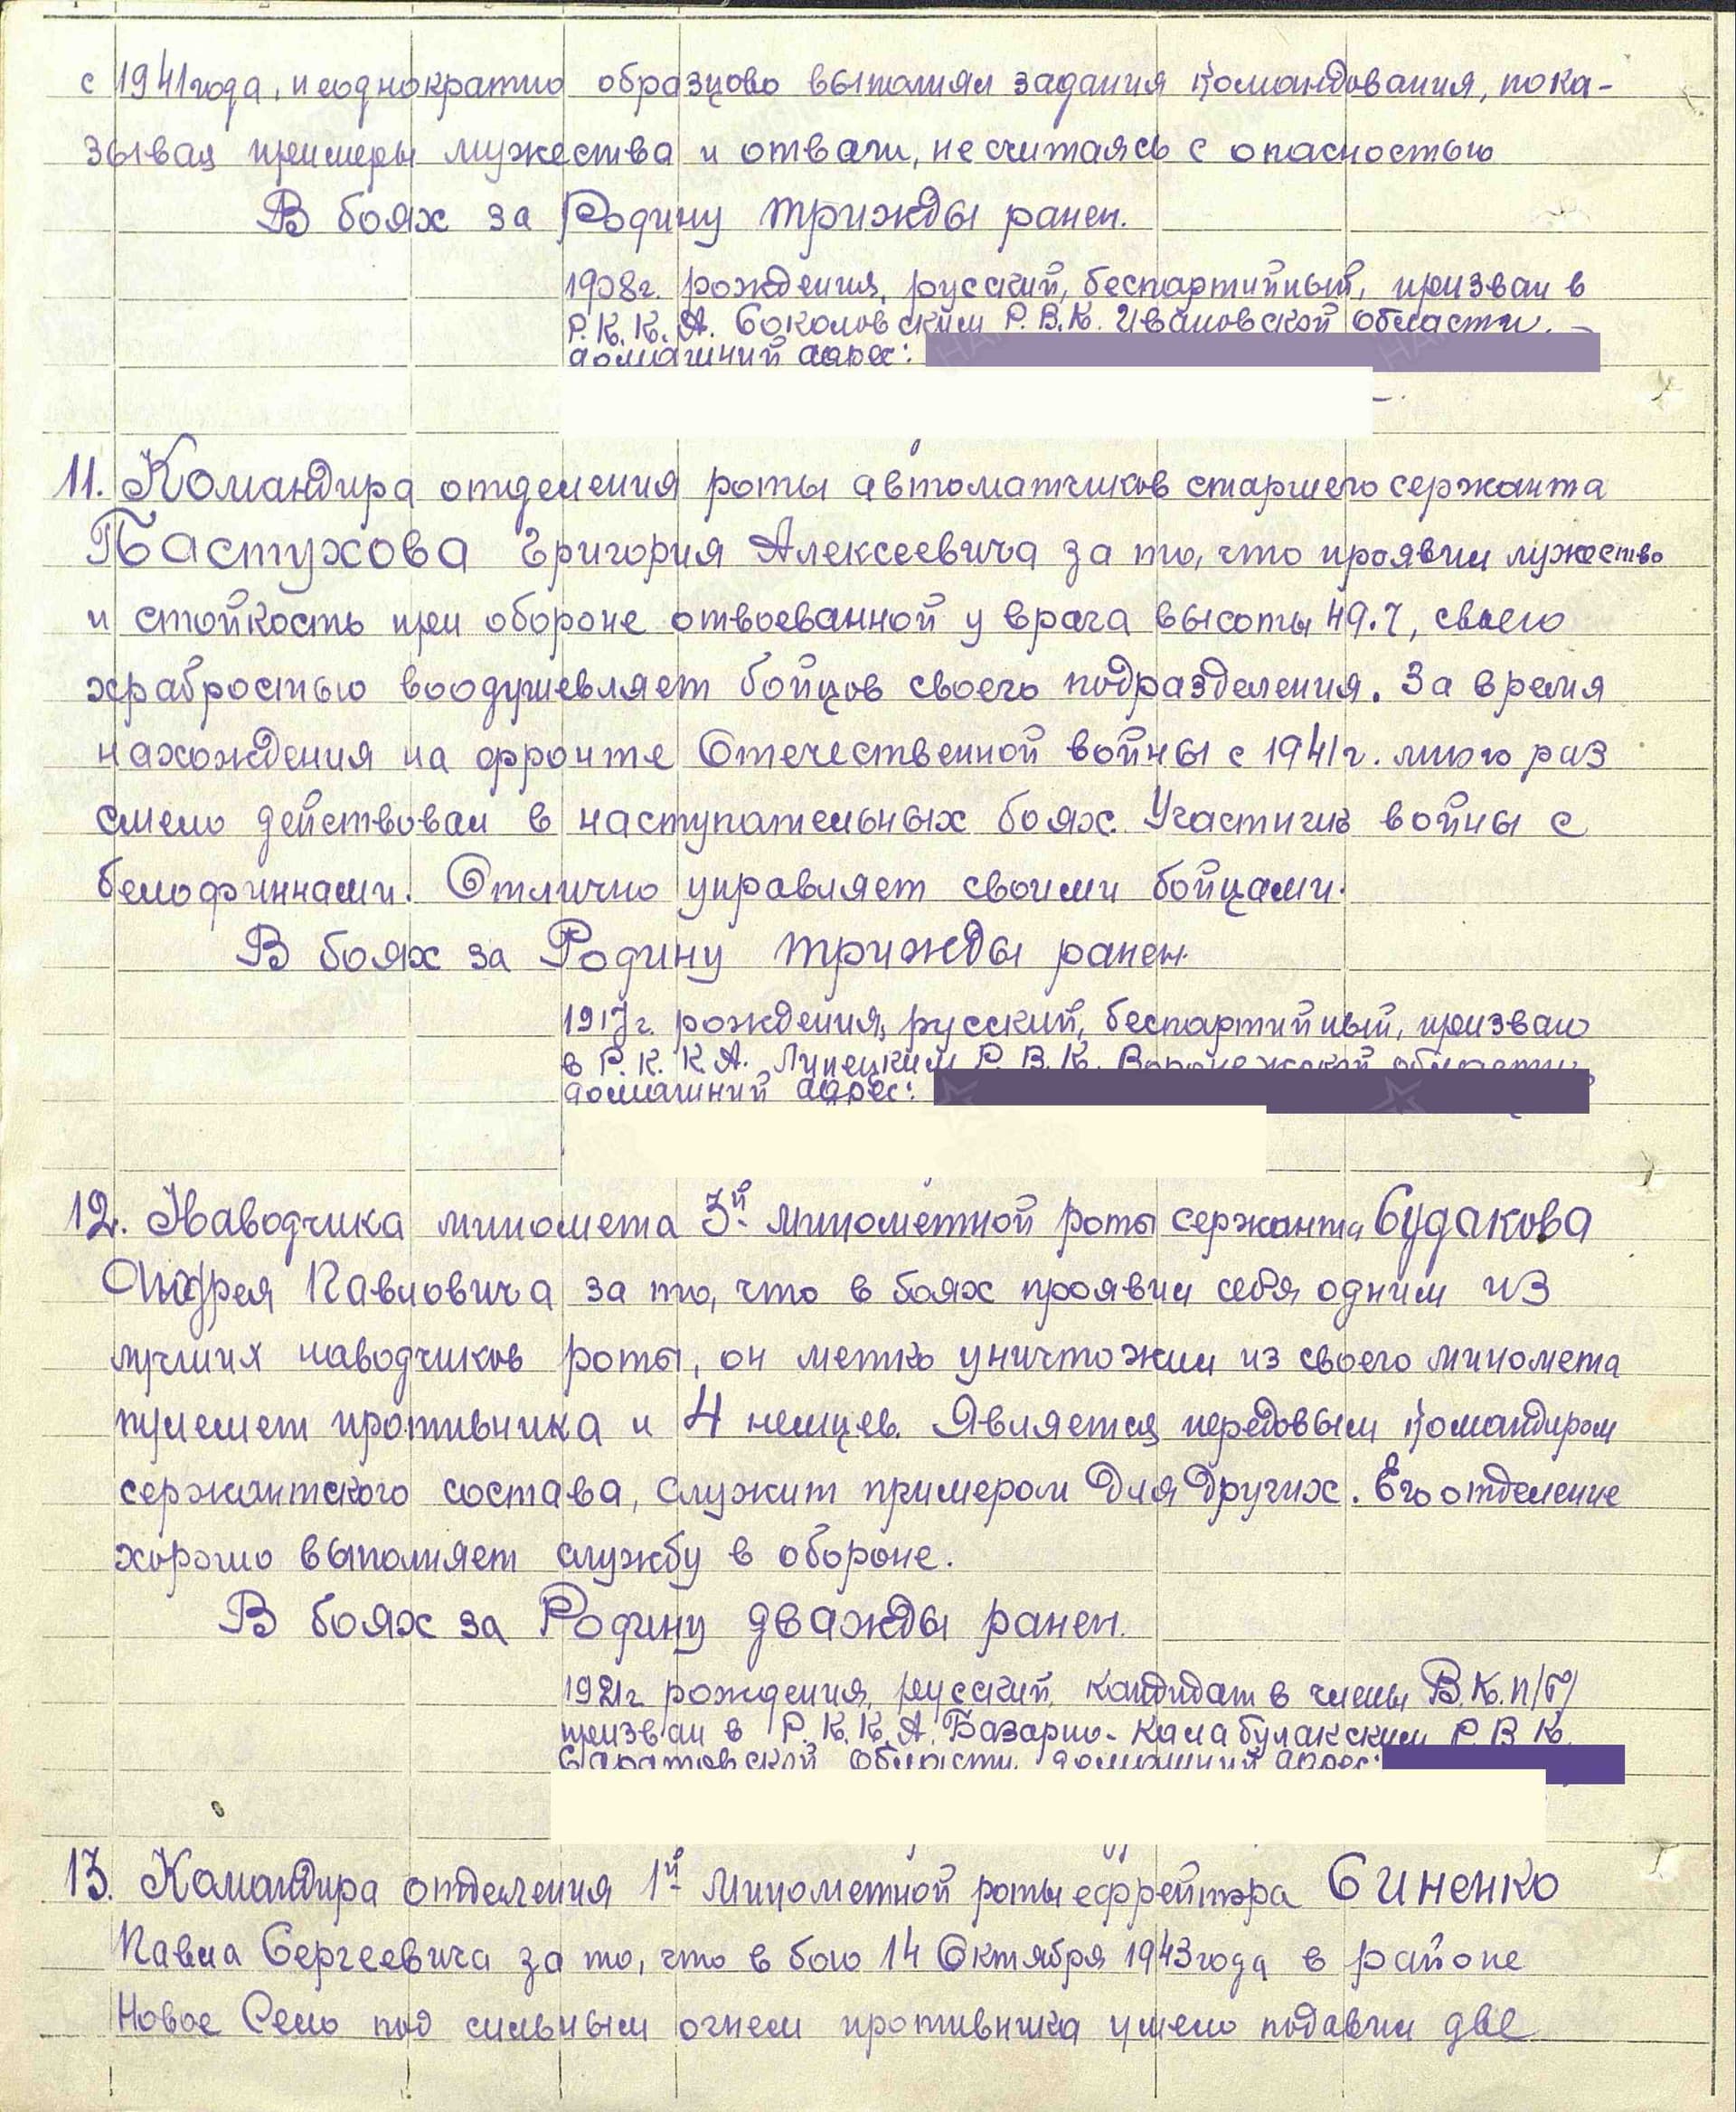 с 1941 года, неоднократно образцово выполнял задания Командования, пока-
зывая примеры мужества и отваги, не считаясь с опасностью
В боях за Родину трижды ранен.
1908 г. рождения, русский, беспартийный, призван в
Р.К.К.А. Соколовским Р.В.К. Ивановской области.
домашний адрес:
11. Командира отделения роты автоматчиков старшего сержанта
Пастухова Григория Алексеевича за то, что проявил мужество
и стойкость при обороне отвоеванной у врага высоты 49.7, своею
храбростью воодушевляет бойцов своего подразделения. За время
нахождения на фронте Отечественной войны с 1941 г. много раз
смело действовал в наступательных боях. Участник войны с
белофиннами. Отлично управляет своими бойцами.
В боях за Родину трижды ранен.
1917 г. рождения, русский, беспартийный, призван
в Р.К.К.А. Липецким Р.В.К. Воронежской области
домашний адрес:
12. Наводчика миномета 3й минометной роты сержанта Судакова
Андрея Павловича за то, что в боях проявил себя одним из
лучших наводчиков роты, он метко уничтожил из своего миномета
пулемет противника и 4 немцев. Является передовым Командиром
сержантского состава, служит примером для других. Его отделение
хорошо выполняет службу в обороне.
В боях за Родину дважды ранен.
1921 г. рождения, русский, кандидат в члены В.К.П/б/
призван в Р.К.К.А. Базарно-Карабулакским Р.В.К.
Саратовской области, домашний адрес:
13. Командира отделения 1й минометной роты ефрейтора Синенко
Павла Сергеевича за то, что в бою 14 Октября 1943 года в районе
Новое Село под сильным огнем противника умело подавил две